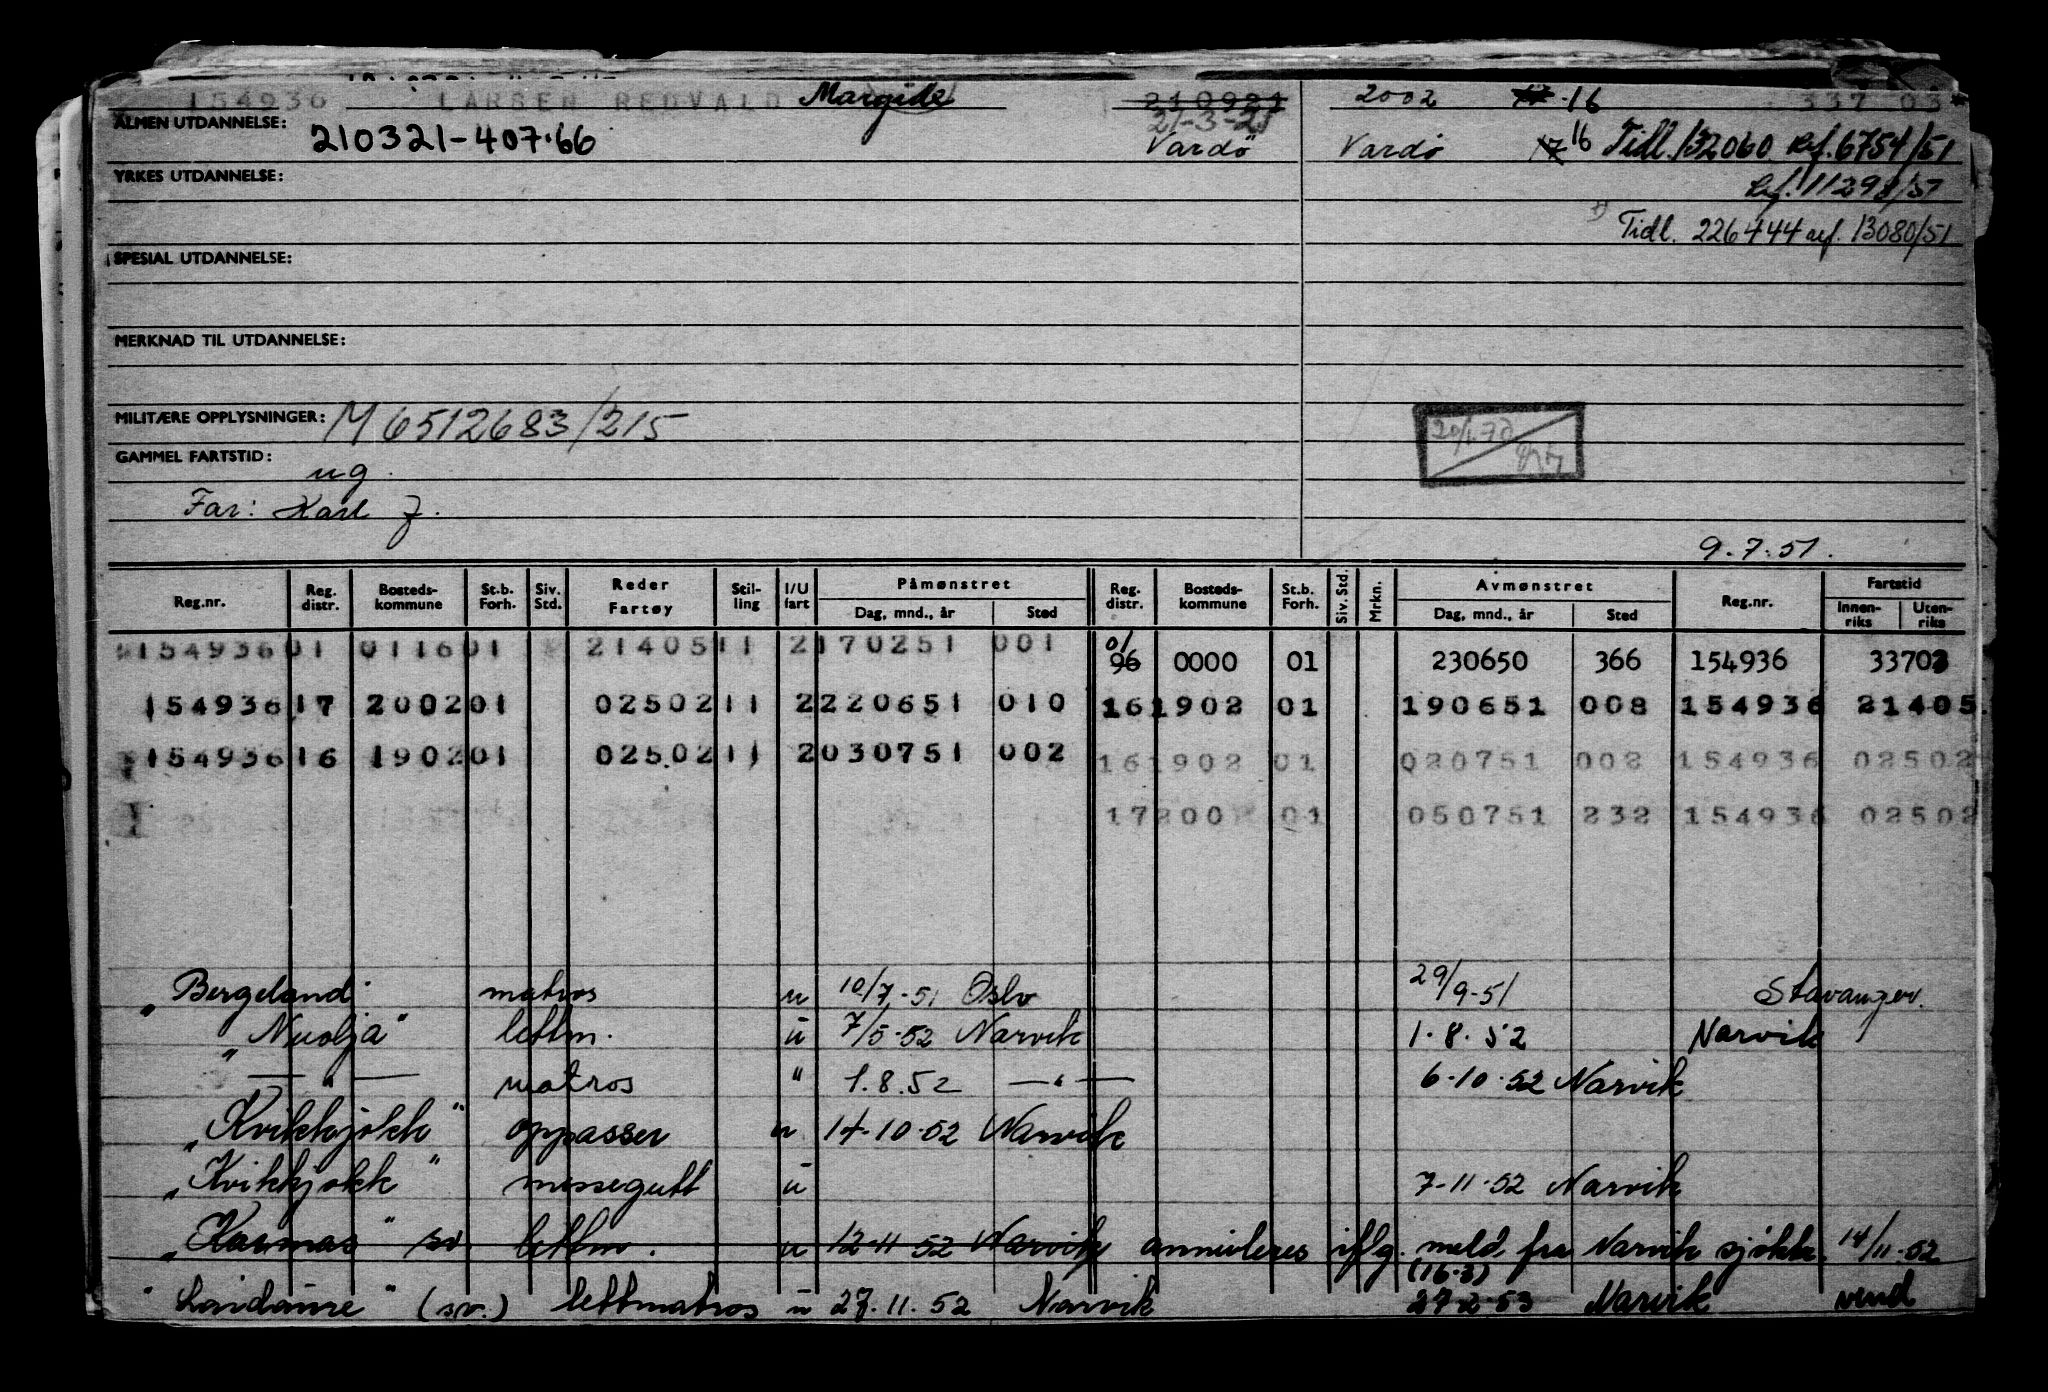 154936 LARSEN REDVALD Margido 210921 2002 16 337 03
ALMEN UTDANNELSE: 210321-407.66 21-3-21 Vardö Vardö 16 Tidl. 132060 Ref. 6754/51
YRKES UTDANNELSE: Ref. 11298/51
Tidl. 226444 ref. 13080/51
SPESIAL UTDANNELSE:
MERKNAD TIL UTDANNELSE:
MILITÆRE OPPLYSNINGER: M 6512683/215
20/1.70
GAMMEL FARTSTID: ug.
Far: Karl J.
9.7.51.
Reg.nr. Reg. distr. Bosteds-kommune St.b. Forh. Siv. Std. Reder Fartøy Stil-ling I/U fart Påmønstret Dag, mnd., år Sted Reg. distr. Bosteds-kommune St.b. Forh. Siv. Std. Mrkn. Avmønstret Dag, mnd., år Sted Reg.nr. Fartstid Innen-riks Uten-riks
154936 01 0116 01 21405 11 2 170251 001 01 96 0000 01 230650 366 154936 33703
154936 17 2002 01 02502 11 2 220651 010 16 1902 01 190651 008 154936 21405
154936 16 1902 01 02502 11 2 030751 002 16 1902 01 020751 002 154936 02502
17 200 01 050751 232 154936 02502
"Bergeland" matros u 10/7.-51 Oslo 29/9-51 Stavanger.
"Nuolja" lettm. u 7/5-52 Narvik 1.8.52 Narvik
— " — matros " 1.8.52 — " — 6-10.52 Narvik
"Kvikkjokk" oppasser u 14-10-52 Narvik
"Kvikkjokk" messegutt u 7-11-52 Narvik
"Karmas" sv lettm. u 12-11 52 Narvik annuleres iflg. meld. fra Narvik sjökk. 14/11-52
(16-3)
"Laidaure" (sv.) lettmatros u 27.11.52 Narvik 27-2-53 Narvik